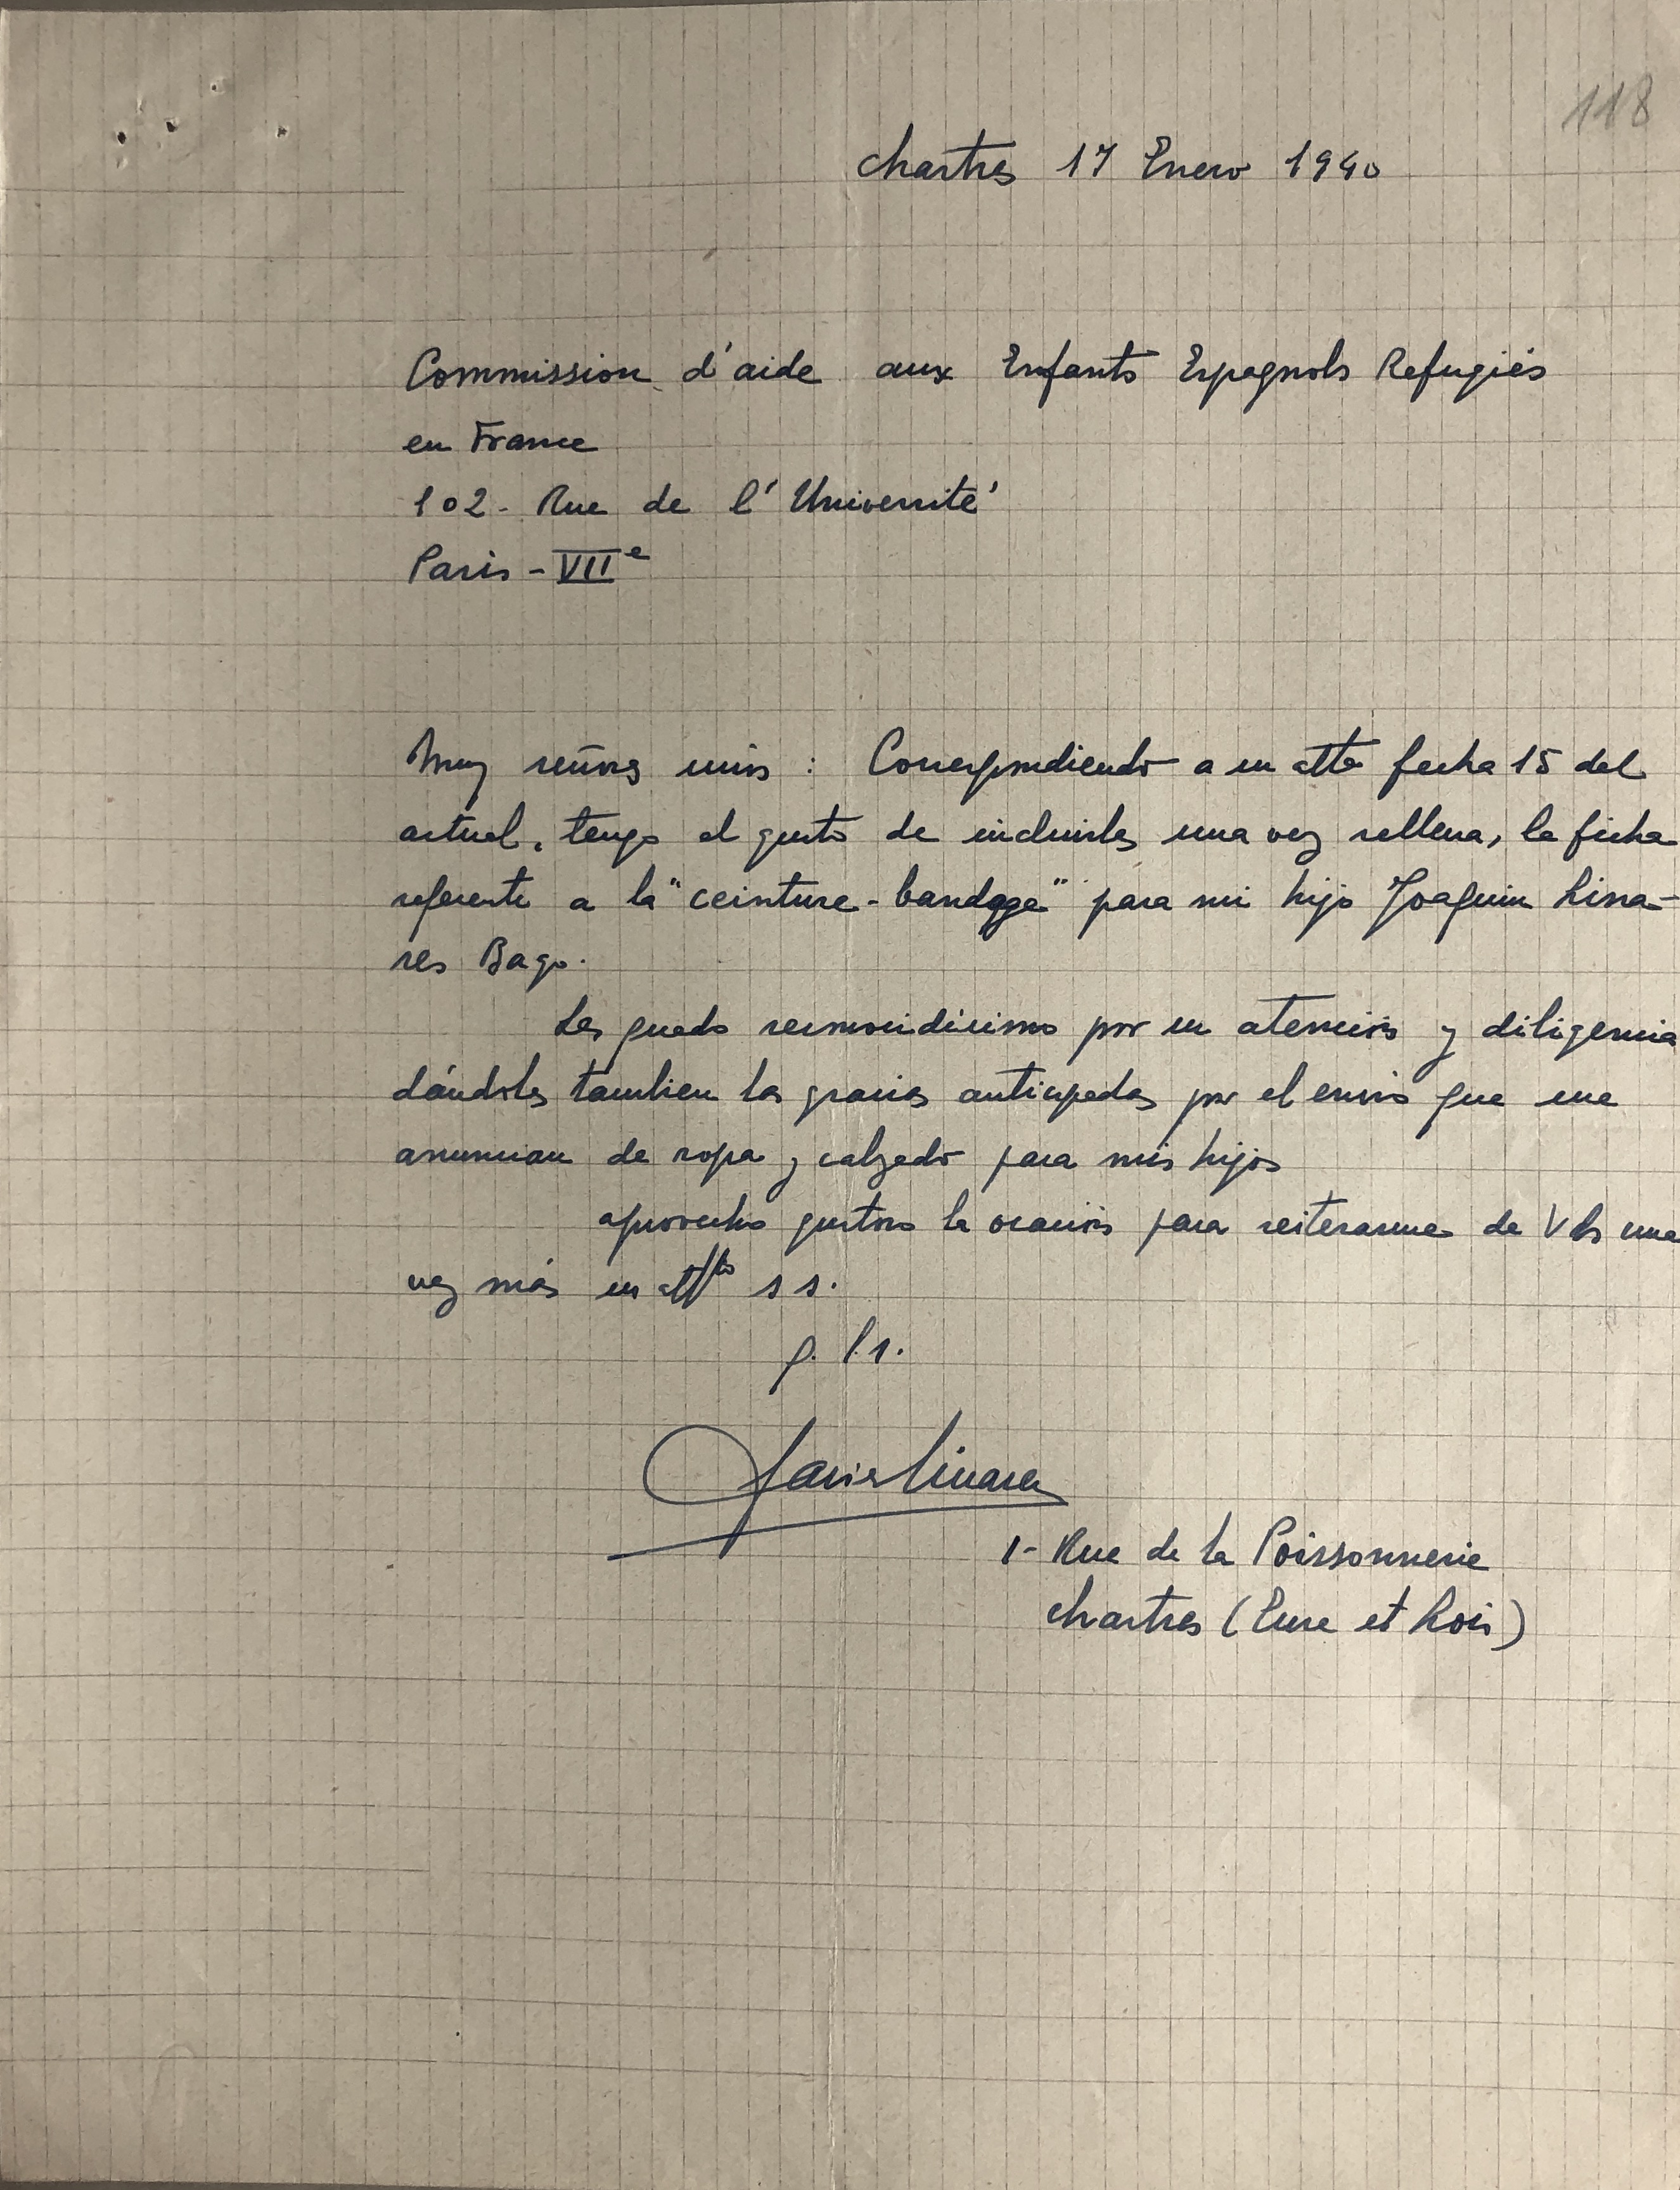 118
Chartres 17 Enero 1940
Commission d'aide aux Enfants Espagnols Refugiés
en France
102 - Rue de l'Université
Paris - VIIe
Muy señores mios : Correspondiendo a su atta fecha 15 del
actual, tengo el gusto de incluirles una vez rellena, la ficha
referente a la "ceinture-bandage" para mi hijo Joaquin Lina-
res Bago.
Les quedo reconocidisimo por su atencion y diligencia
dándoles tambien las gracias anticipadas por el envio que me
anuncian de ropa y calzado para mis hijos
aprovecho gustoso la ocasion para reiterarme de Vds una
vez más su affto s s.
q. l s.
Javier Linares
1 - Rue de la Poissonnerie
Chartres (Eure et Loir)